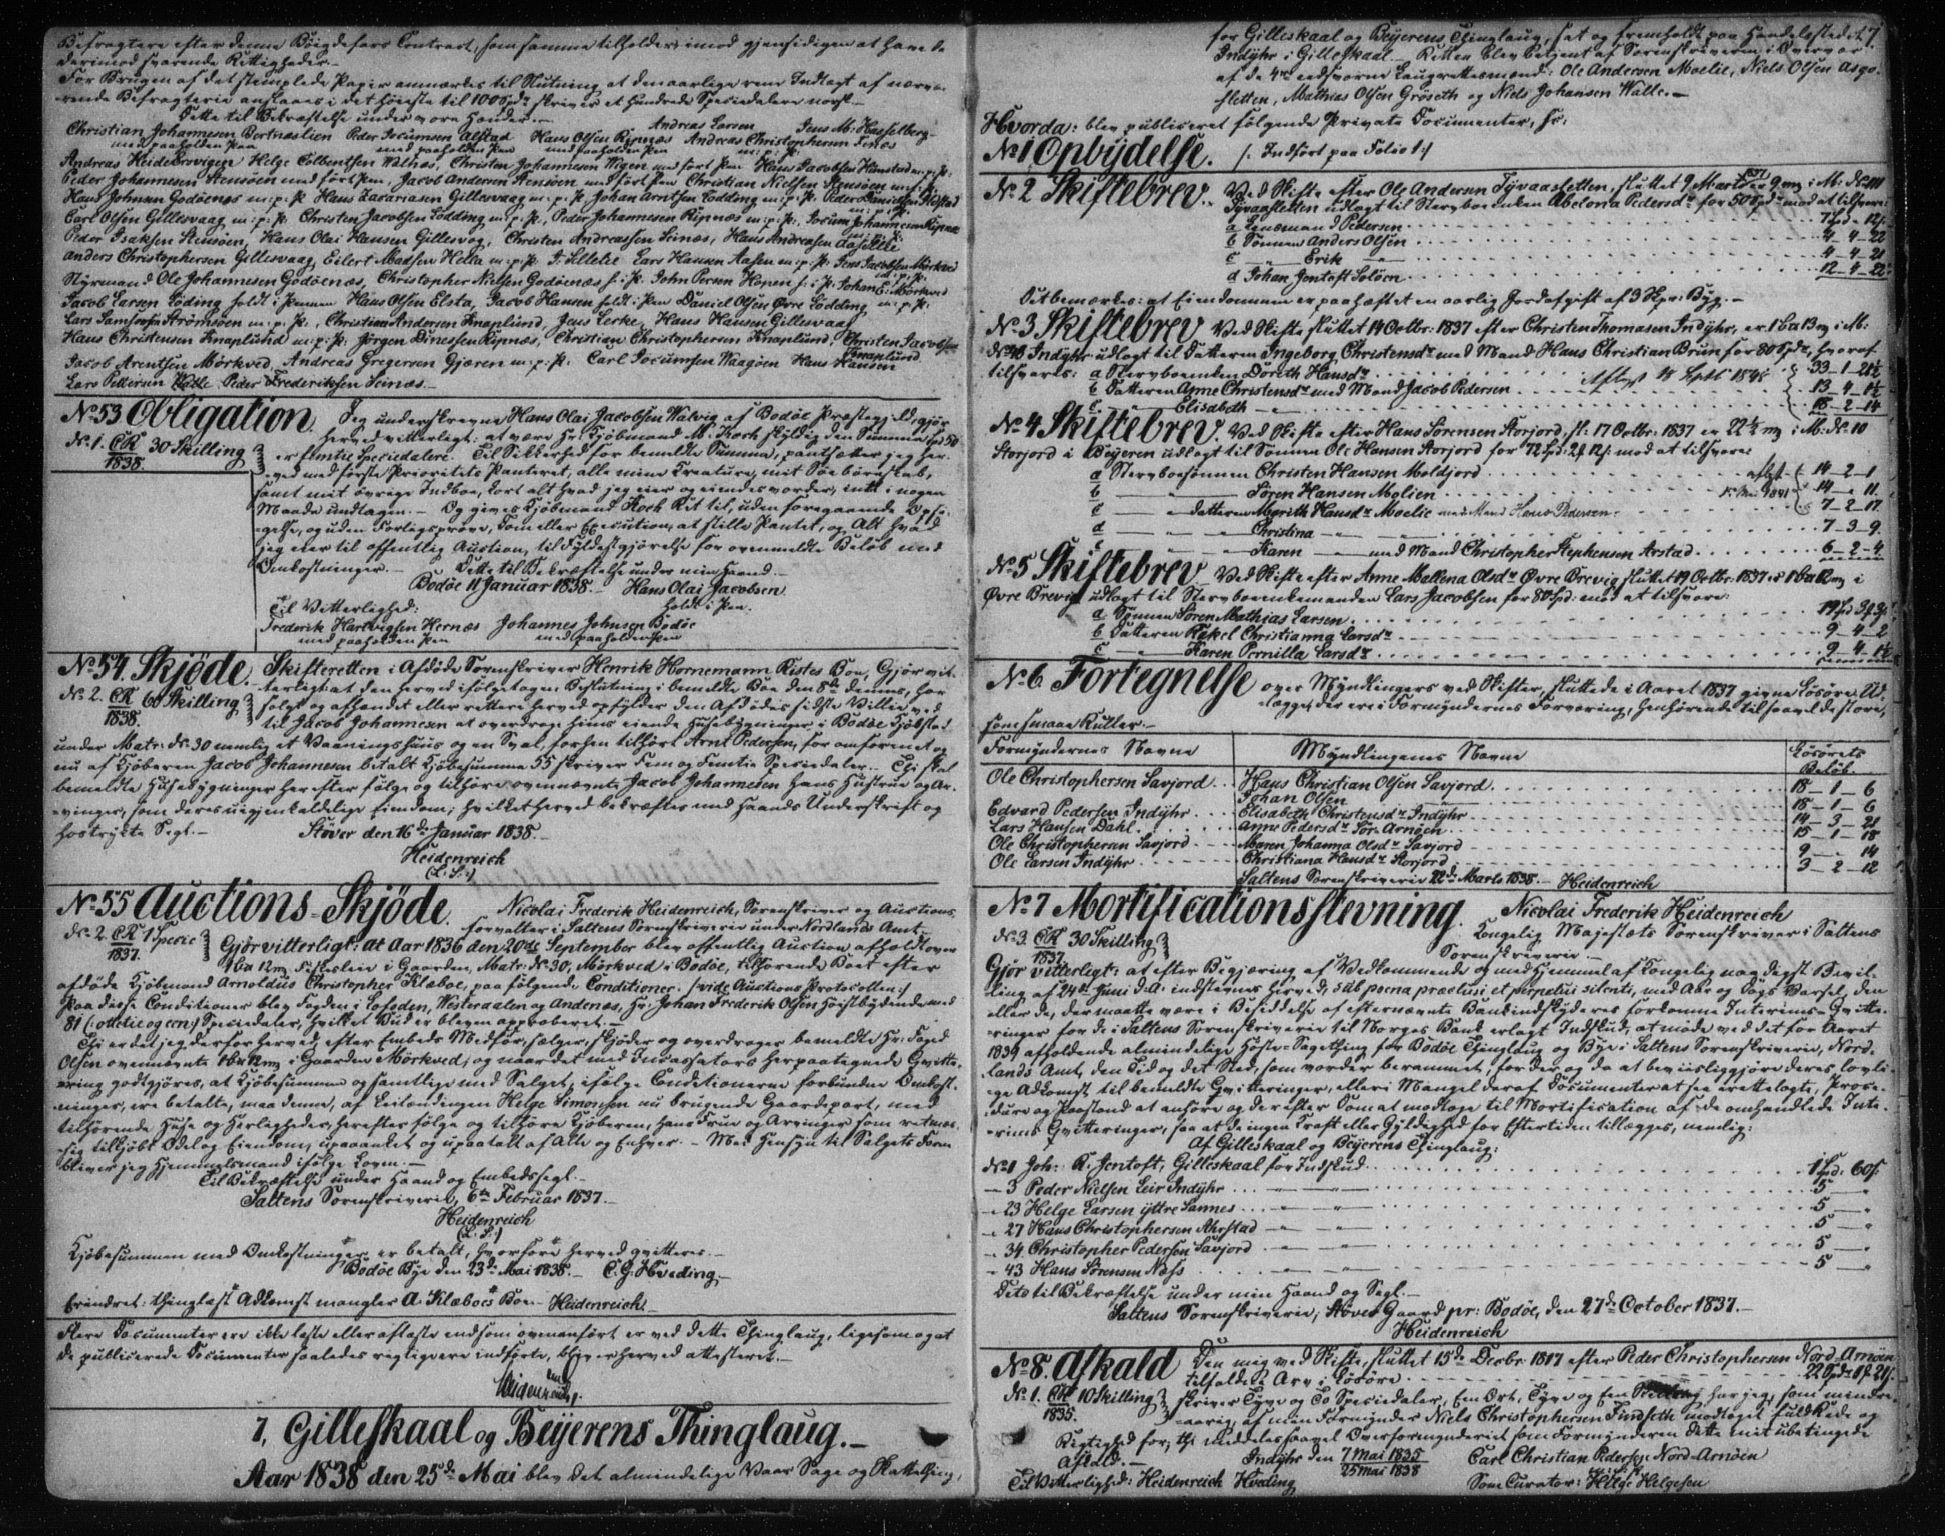 Befragtere efter denne Bøigdefars Contract, som samme tilholder, imod gjensidigen at have de
derimod svarende Rettigheder.-
For Brugen af det stemplede Papir anmærkes til Slutning at den aarlige rene Indtægt af nærvæ-
rende Befragterie anslaaes i det høieste til 100 Spd skriver et Hundrede Speciedalere norsk.-
Dette til Bekræftelse under vore Hænder.-
Christian Johannesen Bertnæslien Peder Jocumsen Alstad Hans Olsen Ripnæs Andreas Larsen Jens M: Hasselberg
med paaholden Pen med paaholden Pen med paaholden Pen Andreas Christophersen Fenes m: p: p:
Andreas Heidebrovigen Helge Eilbentsen Walnæs, Christen Johannesen Wigen med ført Pen Hans Jacobsen m: p: p:
Peder Johannesen Stensøen med ført Pen, Jacob Andersen Stensøen med ført Pen Christian Nielsen Stensøen m: p: p:
Hans Johnsen Godøenæs m: p: p: Hans Zacariasen Gillesvaag m: p: p: Johan Arntsen Lødding m: p: p: Peder Danielsen Alstad
Carl Olsen Gillesvaag m: p: p: Christen Jacobsen Lødding m: p: p., Peder Johannesen Ripnæs m: p: p. Jocum Johannesen Ripnæs
Peder Isaksen Stensøen, Hans Olai Hansen Gillesvog, Christen Andreassen Seinæs, Hans Andreasen
Anders Christophersen Gillesvaag, Eilert Madsen Hella m: p: p. Lars Hansen Aasen m: p: p: Jens Jacobsen Mørkved
Styrmand Ole Johannesen Godøenæs, Christopher Nielsen Godøenæs f: i: P: John Persen Hopen f: i: P: Johan E: Mørkved
Jacob Larsen Løding holdt i Pennen Hans Olsen Elsta, Jacob Hansen holdt i Pen Daniel Olsen Øvre Lødding m: p: p:
Lars Samsonsen Strømsøen m: p: p., Christian Andersen Knaplund, Jens Lerke, Hans Hansen Gillesvaag
Hans Christensen Knaplund m: p: p: Jørgen Dinessen Ripnæs, Christian Christophersen Knaplund, Christen Jacobsen
Jacob Arentsen Mørkved, Andreas Gregersen Gjæren m: p: p. Carl Jocumsen Waagøen Hans Hansen Knaplund
Lars Pettersen Peder Frederiksen Seinæs.-
No 53 Obligation. Jeg underskrevne Hans Olai Jacobsen Walvig af Bodøe Præstegjeld gjør
No. 1. CR 30 Skilling herved vitterligt: at være Hr Kjøbmand M: Koch skyldig den Summa Spd 50
1838. er femtie Speciedalere. Til Sikkerhed for bemeldte Summa, pantsætter jeg her-
ved med første Prioritets Panteret, alle mine Creature, mit Søe børnskab,
samt mit øvrige Indboe, kort alt hvad jeg eier og eiendes vorder, intet i nogen
Maade undtagen.- Og gives Kjøbmand Koch Ret til, uden foregaaende Opsi-
gelse, og uden Forligsprøve, Dom eller Execution, at stille Pantet, og Alt hvad
jeg eier til offentlig Auction, til Fyldestgjørelse for ovenmeldte Beløb med
Omkostninger.- Dette til Bekræftelse under min Haand.-
Bodøe 11 Januar 1838.- Hans Olai Jacobsen
Til Vitterlighed: holdt i Pen.
Frederik Hartvigsen Hernæs Johannes Johnsen Bodøe
med paaholden Pen med paaholden Pen
No 54. Skjøde.- Skifteretten i Afdøde Sorenskriver Henrik Hornemann Ristes Boe, Gjør vit-
No. 2. CR 60 Skilling terligt: at den herved ifølge tagen Beslutning i bemeldte Boe den 8de dennes, har
1838. solgt og afhændet eller rettere herved opfylder den Afdødes sidste Villie ved
til Jacob Johannesen at overdrage hans eiende Husebygninger i Bodøe Kjøbsted
under Matr: No. 30 nemlig et Vaaningshuus og en Sval, forhen tilhørt Arnt Pedersen, for omforenet og
nu af Kjøberen Jacob Johannesen betalt Kjøbesumma 55 skriver Fem og Femtie Speciedaler. Thi skal
bemeldte Husebygninger herefter følge og tilhøre ovennævnte Jacob Johannesen hans Hustrue og Ar-
vinger, som deres uigjenkaldelige Eiendom; hvilket herved bekræftes med Haands Underskrift og
hostrykte Segl.- Støver den 16de Januar 1838.-
Heidenreich
(L. S.)
No 55 Auctions-Skjøde. Nicolai Frederik Heidenreich, Sorenskriver og Auctions-
No. 2. CR 1 Specie forvalter i Saltens Sorenskriverie under Nordlands Amt.-
1837. Gjør vitterligt: at Aar 1836 den 20de September blev offentlig Auction afholdt over
1 bm 12 mk Fiskeleie i Gaarden, Matr: No. 30, Mørkved i Bodøe, tilhørende Boet efter
afdøde Kjøbmand Arnoldus Christopher Klæboe, paa følgende Conditioner. (vide Auctions Protocollen:)
Paa disse Conditioner blev Fogden i Lofoden, Westeraalen og Andenæs, Hr: Johan Frederik Olsen høistbydende med
81 (: ottetie og een:) Speciedaler, hvilket Bud er bleven approberet.-
Thi er det jeg derfor herved, efter Embeds Medfør, sælger, skjøder og overdrager bemeldte Hr: Foged
Olsen ovennævnte 1 bm 12 mk i Gaarden Mørkved, og naar det med Incassators herpaategnede Qvitte-
ring godtgjøres, at Kjøbesummen og samtlige med Salget, ifølge Conditionerne forbundne Omkost-
ninger, ere betalte, maa denne, af Leilændingen Helge Simonsen nu brugende Gaardepart, med
tilhørende Huse og Herligheder, herefter følge og tilhøre Kjøberen, hans Frue og Arvinger som retmæs-
sig tilkjøbt Odel og Eiendom, upaaanket og upaatalt af Alle og Enhver.- Med Hensyn til Salgets Form
bliver jeg Hjemmelsmand ifølge Loven.-
Til Bekræftelse under Haand og Embedssegl.-
Saltens Sorenskriverie, 6te Februar 1837.-
Heidenreich
(L. S.)
Kjøbesummen med Omkostninger er betalt, hvorfore herved qvitteres.-
Bodøe Bye den 23de Mai 1838.- C. G. Hveding.-
Erindret: thinglæst Adkomst mangler A. Klæboes Boe.- Heidenreich.-
Flere Documenter ere ikke læste eller aflæste end som ovenanført er ved dette Thinglaug, ligesom og at
de publicerede Documenter saaledes rigtig ere indførte, bliver herved attesteret.-
Heidenreich
7, Gilleskaal og Beyerens Thinglaug.-
Aar 1838 den 25de Mai blev det almindelige Vaar Sage og Skatteting,
7.
for Gilleskaal og Beyerens Thinglaug, sat og fremholdt paa Handelsstedet
Indyhr i Gilleskaal.- Retten blev betjent af Sorenskriveren i Overvær
af de 4re eedsvorne Laugrettesmænd: Ole Andersen Moelie, Niels Olsen Asgo-
fletten, Mathias Olsen Grøseth og Niels Johansen Walle.-
Hvorda: blev publiceret følgende Private Documenter, sc:
No 1 Opbydelse. /: Indført paa Folio 1:/
No 2 Skiftebrev. Ved Skifte efter Ole Andersen Tyvaasletten, sluttet 9 Marts 1837 er 9 mk i M: No 111
Tyvaasletten udlagt til Stervboenken Abelona Pedersdr for 50 Spd: mod at tilsvare:
a Lensmand Pedersen 7 Spd - 12 s.
b Sønnen Anders Olsen 4-4-22
c " Erik " 4-4-21
d Johan Jentoft Soløen 12-4-22
Det bemærkes: at Eiendommen er paahæftet en aarlig Jordafgift af 3 Skpr: Byg.-
No 3 Skiftebrev Ved Skifte sluttet 14 Octbr: 1837 efter Christen Thomasen Indyhr, er 1 bm 13 mk i M:
No 40 Indyhr udlagt til Datteren Ingeborg Christensdr med Mand Hans Christian Brun for 80 Spdr, hvoraf
tilsvares: a Stervboenken Dorith Hansdr 33-1-21½
b Datteren Anne Christensdr med Mand Jacob Pedersen 13-4-1½
c " Elisabeth 18-2-14
Aflyst 18 Septb 1845
No 4 Skiftebrev. Ved Skifte efter Hans Sørensen Storjord, sl: 17 Octbr: 1837 er 22½ mk i M: No. 10
Storjord i Beyeren udlagt til Sønnen Ole Hansen Storjord for 72 Spd: 2 ort 12 s: mod at tilsvare:
a Stervboesønnen Christen Hansen Moldjord 14-2-1
b " Søren Hansen Molien 14-"-11
c " Datteren Marith Hansdr Moelie med Mand Hans Pedersen 7-2-17
d " Christina 7-3-9
e " Karen med Mand Christopher Stephensen Arstad 6-2-4
No 5 Skiftebrev Ved Skifte efter Anne Mallena Olsdr Øvre Brevig sluttet 19 Octbr: 1837 er 1 bm 12 mk i
Øvre Brevig udlagt til Stervboenkemanden Lars Jacobsen for 80 Spd: mod at tilsvare:
a Sønnen Søren Mathias Larsen 19 Spd 3 ort 3 s
b Datteren Rakel Christianna Larsdr 9-4-2
c " Karen Pernilla Larsdr 9-4-1½
No 6 Fortegnelse over Myndlingers ved Skifter, sluttede i Aaret 1837 givne Løsøre Ud-
lægge, der ere i Formyndernes Forvaring, henhørende til saavel de store,
som smaae Ruller.-
Formyndernes Navne Myndlingenes Navne Løsørets
Beløb.
Ole Christophersen Savjord Hans Christian Olsen Savjord 18-1-6
" Johan Olsen " 18-1-6
Edvard Pedersen Indyhr Elisabeth Christensdr Indyhr 14-3-21
Lars Hansen Dahl Anne Pedersdr Sør-Arnøen 15-1-18
Ole Christophersen Savjord Maren Johanna Olsdr Savjord 9-"-14
Ole Larsen Indyhr Christiana Hansdr Storjord 3-2-12
Saltens Sorenskriverie 22de Marts 1838.- Heidenreich
No 7 Mortificationsstevning. Nicolai Frederik Heidenreich
No. 3. CR 30 Skilling Kongelig Majestæts Sorenskriver i Saltens
1837. Sorenskriverie.-
Gjør vitterligt: at efter Begjæring af Vedkommende og med Hjemmel af Kongelig naadigst Bevil-
ling af 24de Juni d: A: indstevnes herved, sub poena præclusi et perpetui silentii, med Aar og Dags Varsel, den
eller de, der maatte være i Besiddelse af efternævnte Bankindskyderes forkomne Interims Qvitte-
ringer for de i Saltens Sorenskriverie til Norges Bank erlagt Indskud, at møde ved det for Aaret
1839 afholdende almindelige Høste-Sageting for Bodøe Thinglaug og Bye i Saltens Sorenskriverie, Nord-
lands Amt, den Tid og det Sted, som vorder berammet, for der og da at beviisliggjøre deres lovli-
ge Adkomst til bemeldte Qvitteringer, eller i Mangel deraf Documenter at see irettelagte, Proce-
dure og Paastand at anhøre og derefter Dom at modtage til Mortification af de omhandlede Inte-
rims Qvitteringer, saa at de ingen Kraft eller Gyldighed for Eftertiden tillægges, nemlig:
Af Gilleskaal og Beyerens Thinglaug:
No 1 Joh: R. Jentoft, Gilleskaal for Indskud 1 Spd: 60 s:
- 3 Peder Nielsen Leir Indyhr 5 - "
- 23 Helge Larsen yttre Sannes 5 - "
- 27 Hans Christophersen Ahrstad 5 - "
- 34 Christopher Pedersen Savjord 5 - "
- 43 Hans Sørensen Næss 5 - "
Dets til Bekræftelse under min Haand og Segl.-
Saltens Sorenskriverie, Støver Gaard pr: Bodøe, den 27de October 1837.-
Heidenreich
No 8. Afkald Den mig ved Skifte, sluttet 15de Decbr: 1817 efter Peder Christophersen Nord-Arnøen
tilfaldet Arv i Løsøre 22 Spd: 1 ort 21 s:
No. 1. CR 10 Skilling skriver Tyve og To Speciedaler, Een Ort, Tyve og Een Skilling har jeg, som mindre-
1835. aarig, af min Formynder Niels Christophersen Findseth modtaget fuldkede og
Rigtighed for; thi meddeles saavel Overformynderiet som Formynderen dette mit ubetingede
Afkald.- Indyhr den 7 Mai 1835 Carl Christian Pedersen Nord-Arnøen
25 Mai 1838
Til Vitterlighed: Heidenreich Hveding Som Curator: Helge Helgesen